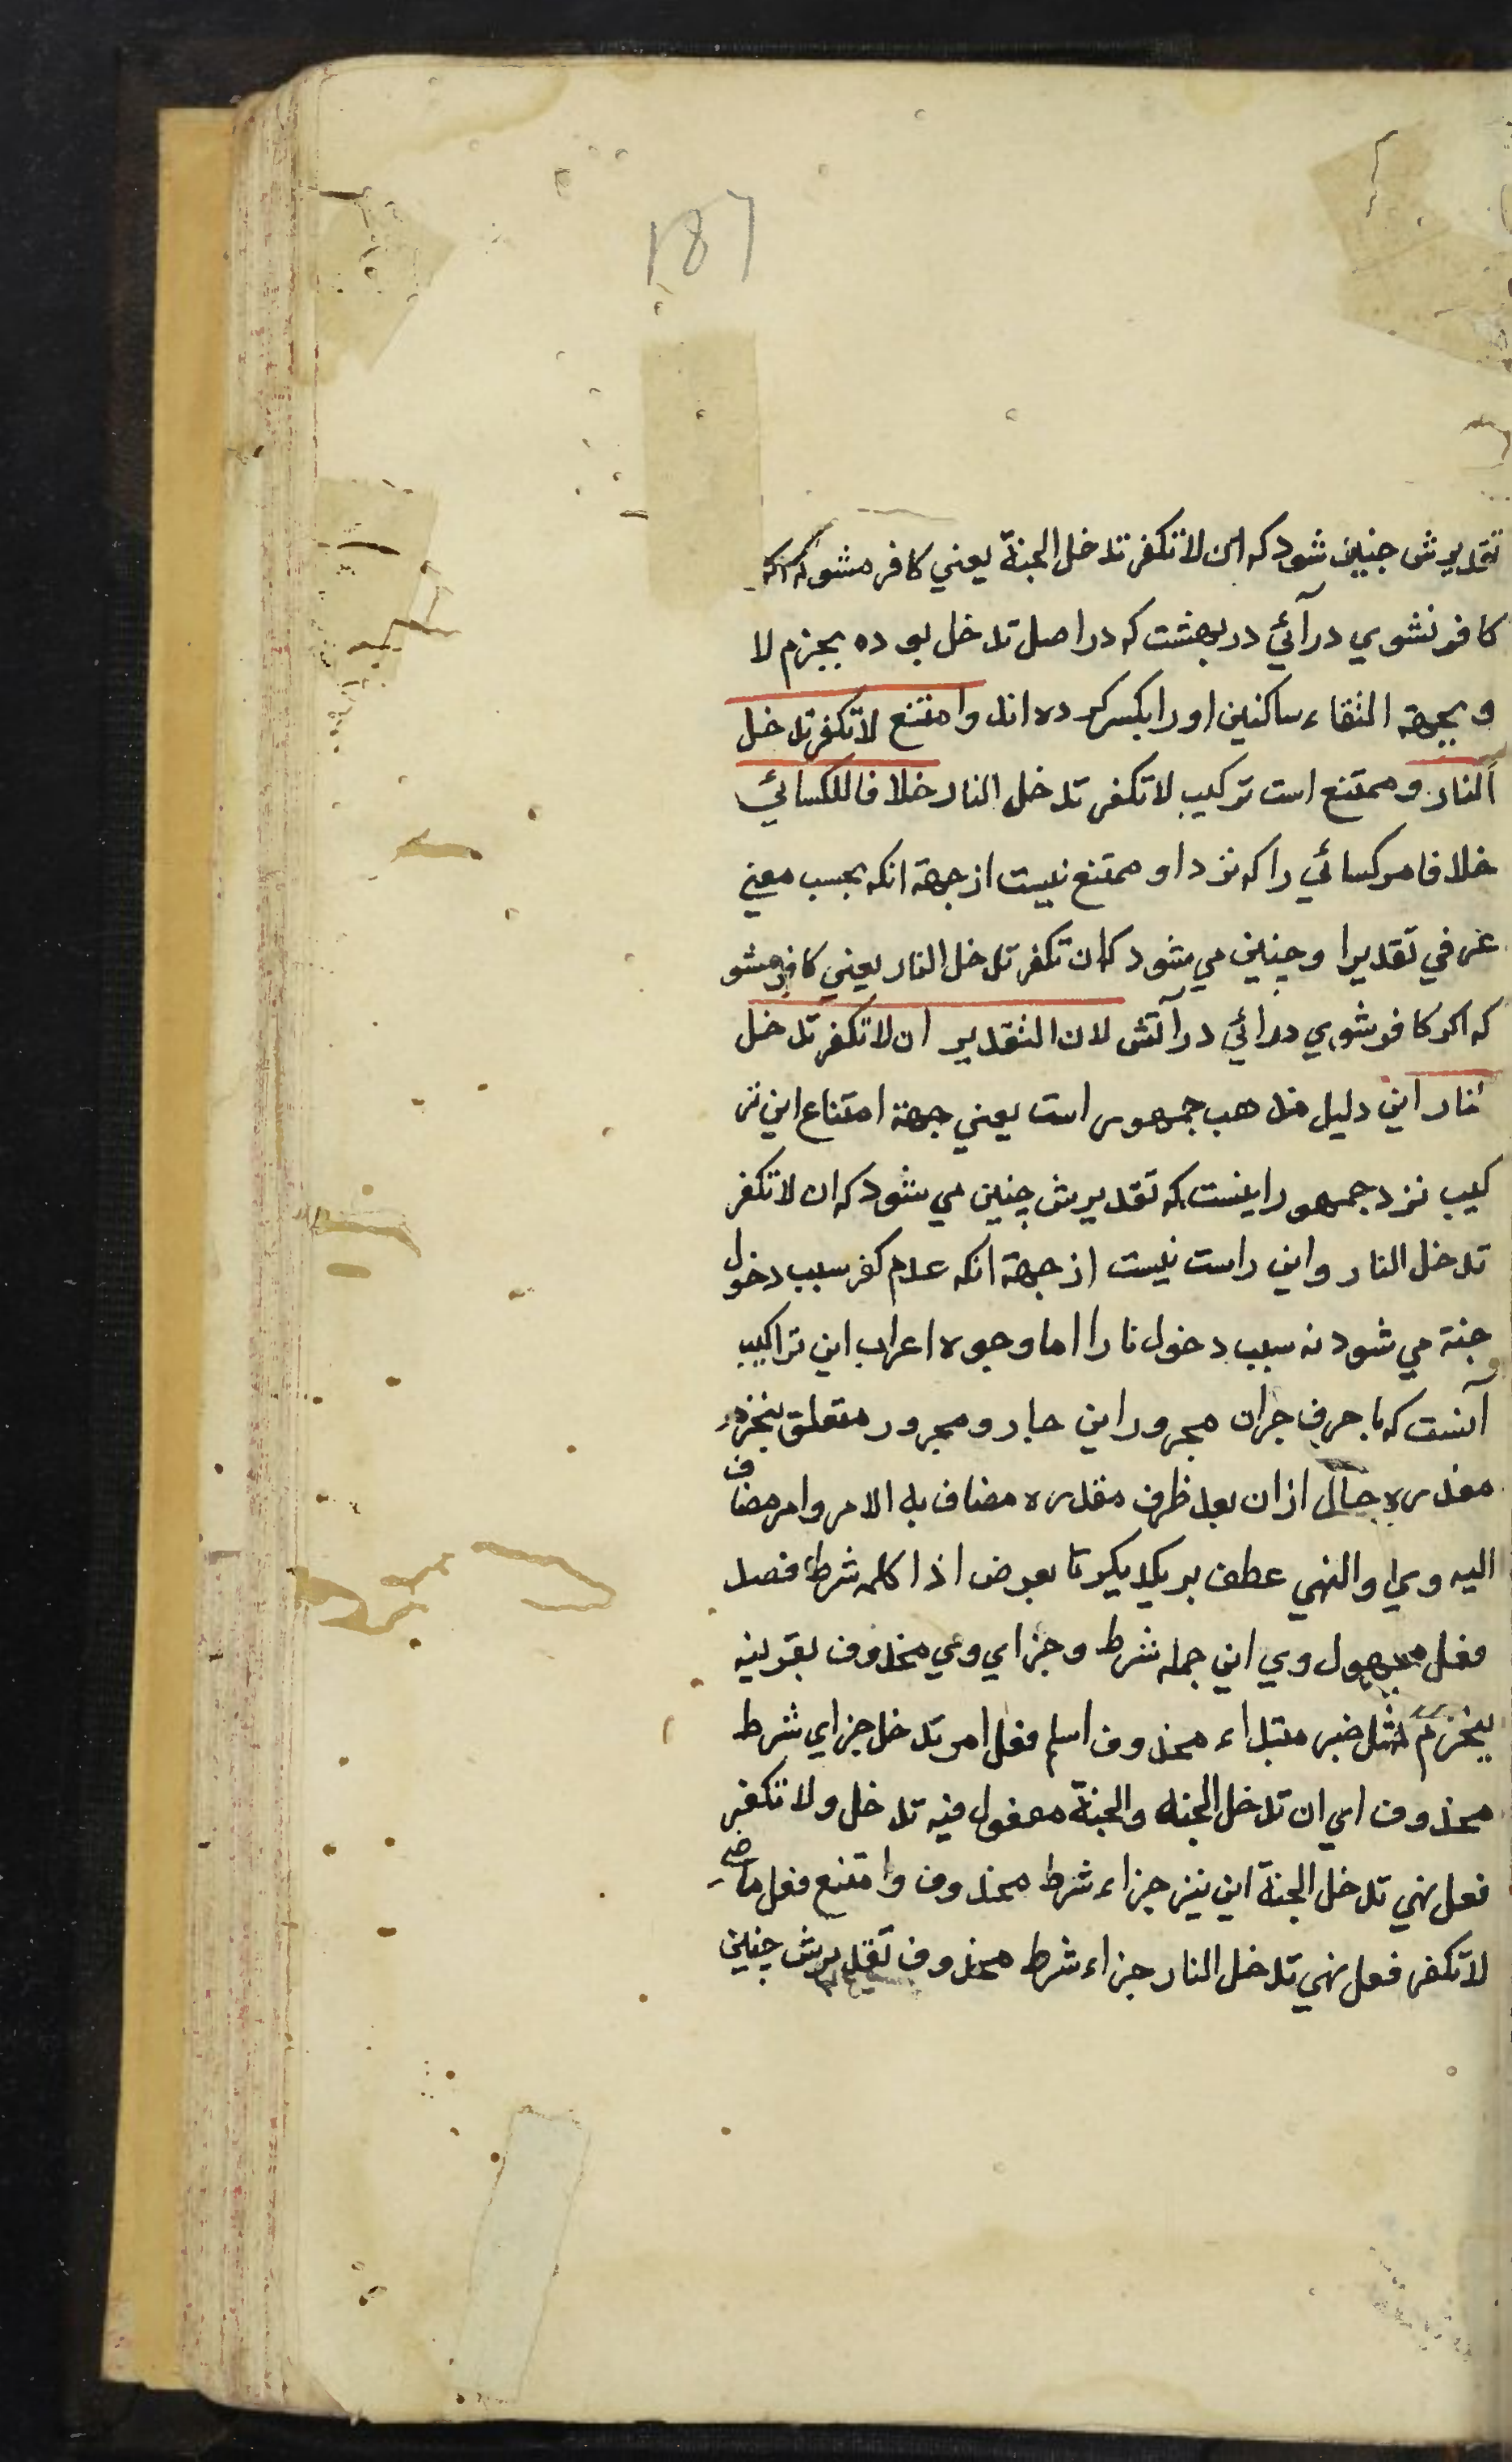 187
تقدیرش چنین شود که ان لا تکفر تدخل الجنة یعنی کافر مشو که اکر
کافر نشوي درآئي در بهشت که در اصل تدخل بوده بجزم لا
و بجهة التقاء ساکنین او را بکسر کرده اند وامتنع لا تکفر تدخل
النار و ممتنع است ترکیب لا تکفر تدخل النار خلافا للکسائي
خلافا مر کسائي را که نزد او ممتنع نیست از جهة انکه بحسب معني
عرفي تقدیر او چنین مي شود که ان تکفر تدخل النار یعني کافر مشو
که اکر کافر شوي درائي در آتش لان التقدیر ان لا تکفر تدخل
النار این دلیل مذهب جمهور است یعني جهة امتناع این تر
کیب نزد جمهور اینست که تقدیرش چنین مي شود که ان لا تکفر
تدخل النار و این راست نیست از جهة انکه عدم کفر سبب دخول
جنة مي شود نه سبب دخول نار اما وجوه اعراب این تراکیب
آنست که با حرف جر ان مجرور این جار و مجرور متعلق ینجزم
مقدره حال از ان بعد ظرف مقدره مضاف به الامر و امر مضاف
الیه وي و النهي عطف بر یکدیکر تا بعوض اذا کلمه شرط قصد
فعل مجهول وي این جمله شرط و جزاي وي محذوف بقرینه
ینجزم مثل خبر مبتداء محذوف اسلم فعل امر تدخل جزاي شرط
محذوف اي ان تدخل الجنه والجنة مفعول فیه تدخل ولا تکفر
فعل نهي تدخل الجنة این نیز جزاء شرط محذوف وامتنع فعل ماضي
لا تکفر فعل نهي تدخل النار جزاء شرط محذوف تقدیرش چنین